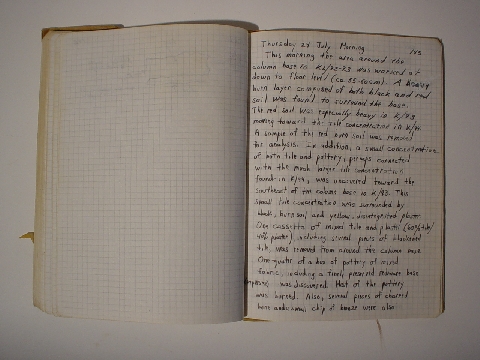 Thursday 24 July Morning 145
This morning the area around the
column base in K2/22-23 was worked at
down to floor level (ca. 55-60cm). A heavy
burn layer composed of both black and red
soil was found to surround the base.
The red soil was especially heavy in K/93,
moving toward the tile concentration in K/94.
A sample of this red burn soil was removed
for analysis. In addition, a small concentration
of both tile and pottery, perhaps connected
with the much larger tile concentration
found in K/94, was uncovered toward the
southeast of the column base in K/93. This
small tile concentration was surrounded by
black, burn soil and yellow, disintegrated plaster.
One cassetta of mixed tile and plaster (60% tile/
40% plaster), including several pieces of blackened
tile, was removed from around the column base.
One-quarter of a box of pottery of mixed
fabric, including a finely preserved miniature base
was discovered. Most of the pottery
was burned. Also, several pieces of charred
bone and a small chip of bronze were also